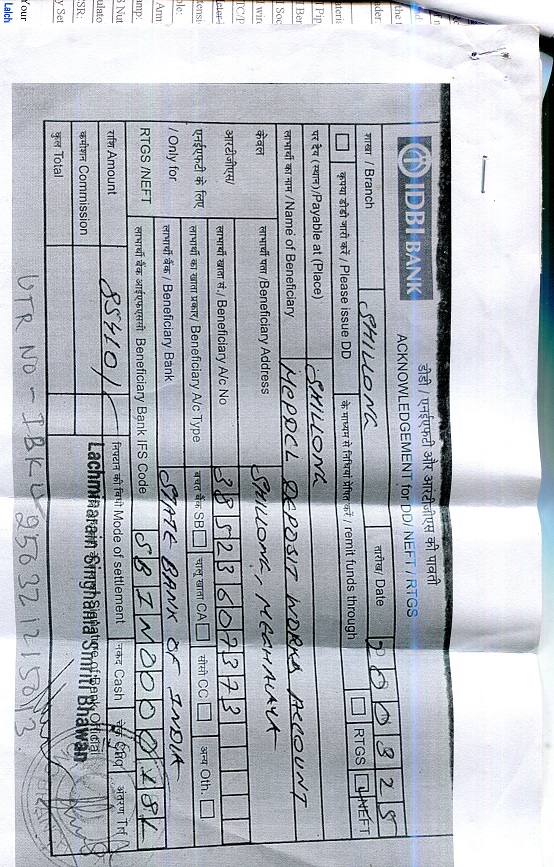 IDBI BANK
डीडी / एनईएफटी और आरटीजीएस की पावती
ACKNOWLEDGEMENT for DD/ NEFT / RTGS
शाखा / Branch SHILLONG तारीख/ Date 0 0 3 2 5
कृपया डीडी जारी करें / Please issue DD के माध्यम से निधियां प्रेषित करें / remit funds through RTGS NEFT
पर देय (स्थान) /Payable at (Place) SHILLONG
लाभार्थी का नाम /Name of Beneficiary MEPDCL DEPOSIT WORKS ACCOUNT
लाभार्थी पता /Beneficiary Address SHILLONG, MEGHALAYA
केवल
आरटीजीएस/
एनईएफटी के लिए
/ Only for
RTGS /NEFT
लाभार्थी खाता सं./ Beneficiary A/c No 38523607373
लाभार्थी का खाता प्रकार/ Beneficiary A/c Type बचत बैंक SB चालू खाता CA सीसी CC अन्य Oth.
लाभार्थी बैंक/ Beneficiary Bank STATE BANK OF INDIA
लाभार्थी बैंक आईएफएससी Beneficiary Bank IFS Code SBIN0000181
राशि Amount 85410/-
निपटान की विधि Mode of settlement नकद Cash चेक अंतरण
कमीशन Commission
Signature of Bank Official
कुल Total
Lachminarain Singhania Smriti Bhawan
UTR NO - IBKL